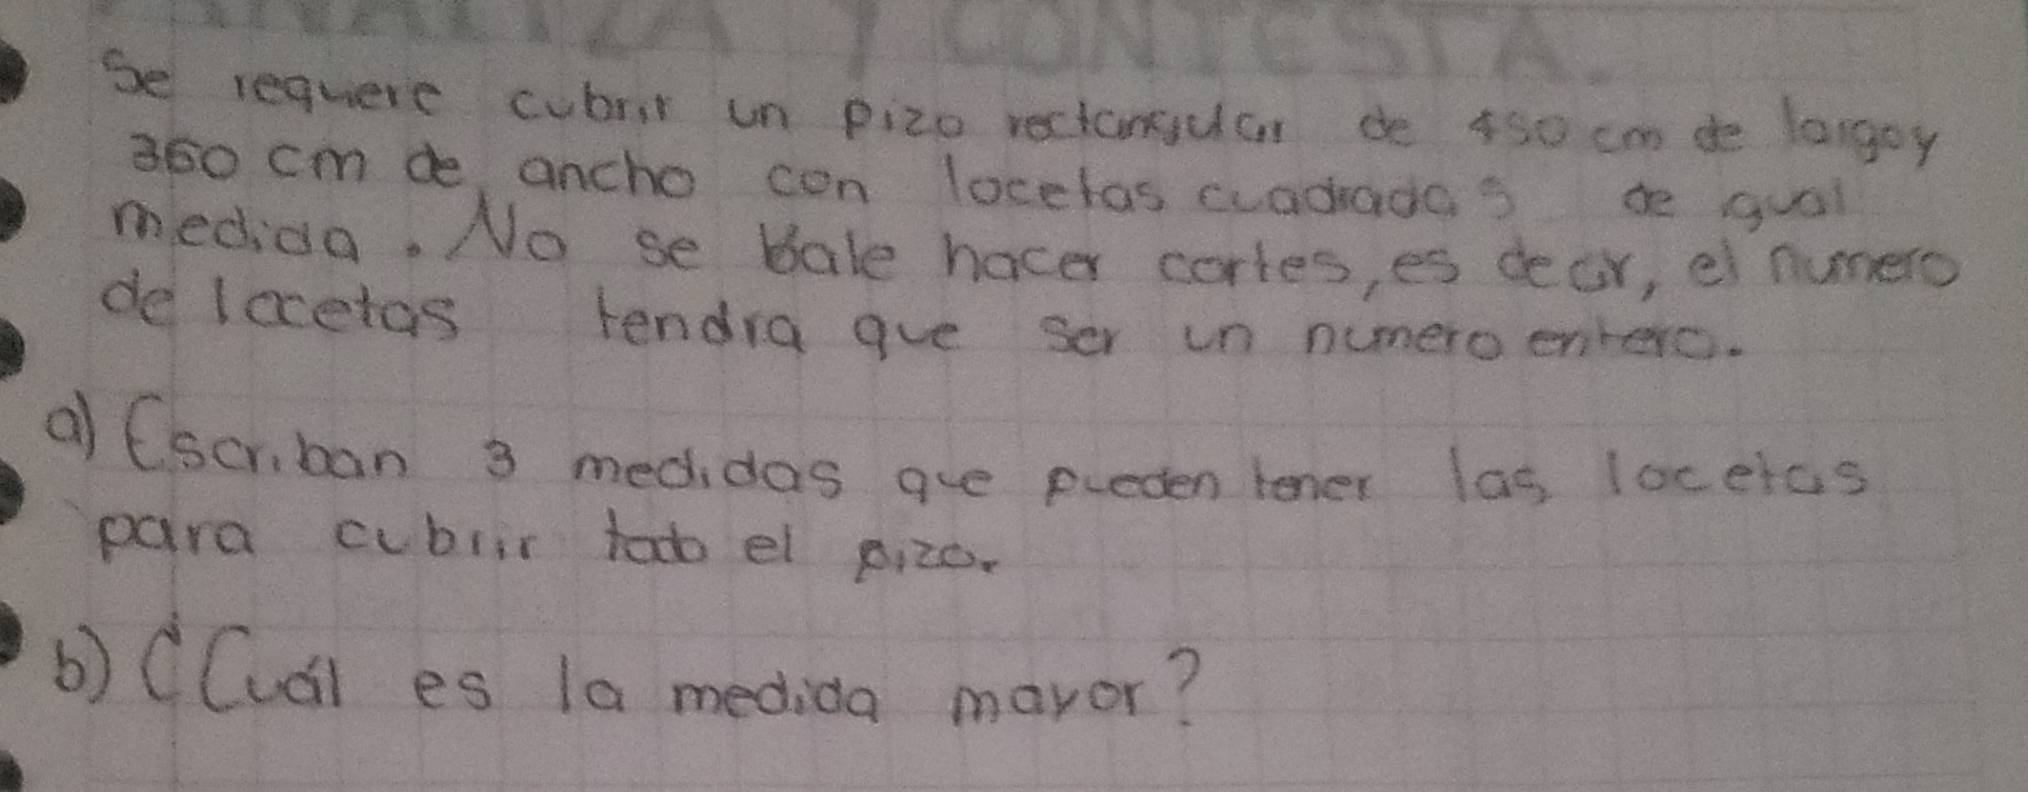 ANALIZA Y CONTESTA.
Se requere cubrir un pizo rectangular de 450 cm de largo y
360 cm de ancho con locetas cuadradas de gual
medida. No se bale hacer cortes, es decir, el numero
de locetas tendra que ser un numero entero.
a) Escriban 3 medidas que pueden tener las locetas
para cubrir todo el pizo.
b) ¿Cuál es la medida mayor?